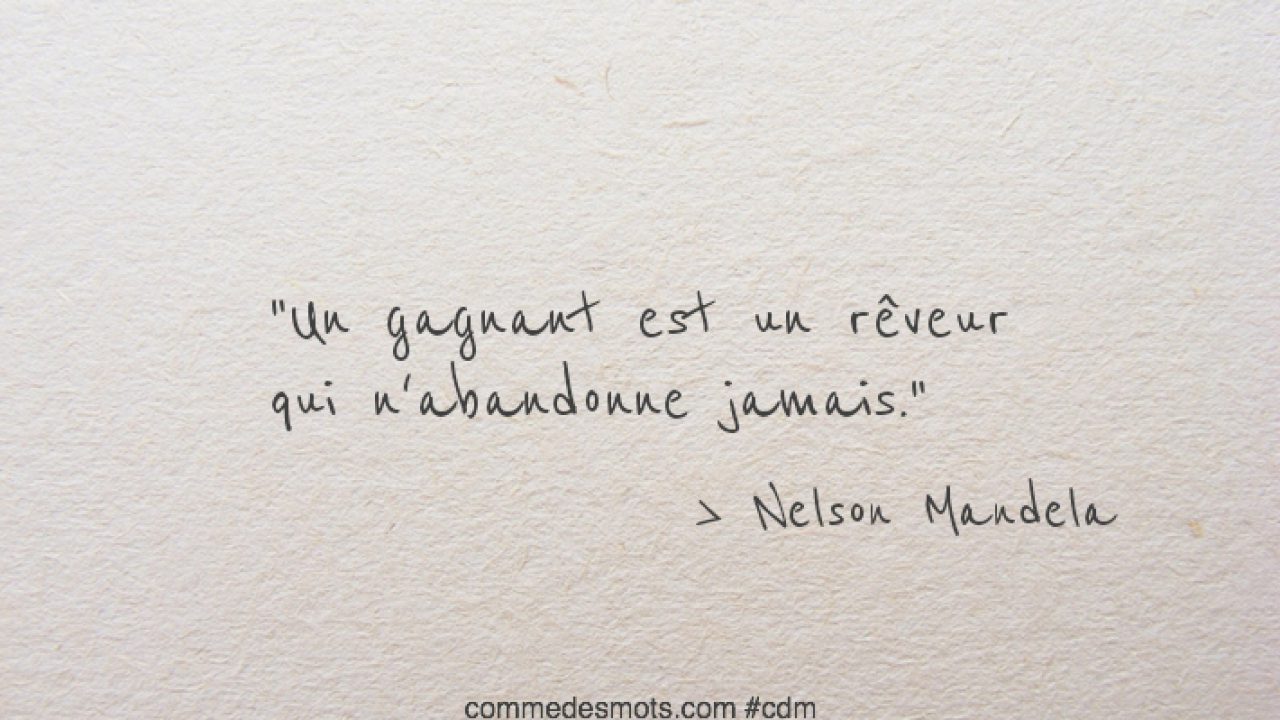 "Un gagnant est un rêveur
qui n'abandonne jamais."
> Nelson Mandela
commedesmots.com #cdm